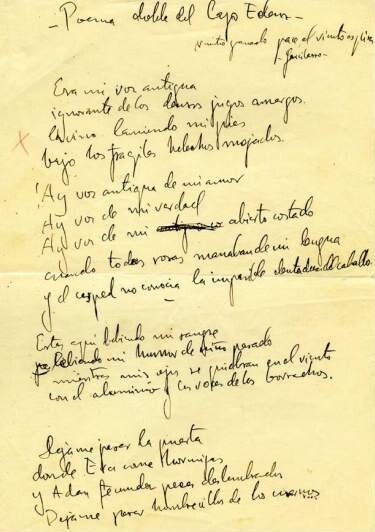 - Poema doble del Lago Edem -
viento ganado, pace el viento espira
- Garcilaso -
Era mi voz antigua
ignorante de los densos jugos amargos.
la vino lamiendo mis pies
bajo los fragiles helechos mojados.
¡Ay voz antigua de mi amor
Ay voz de mi verdad
Ay voz de mi abierto costado
cuando todas rosas manaban de mi lengua
y el cesped no conocia la impasible dentadura del caballo.
Estas aqui bebiendo mi sangre
bebiendo mi humor de niño pasado
mientras mis ojos se quiebran en el viento
con el aluminio y las voces de los borrachos.
Dejame pasar la puerta
donde Eva come hormigas
y Adan fecunda peces deslumbrados
Dejame pasar hombrecillos de los cuernos